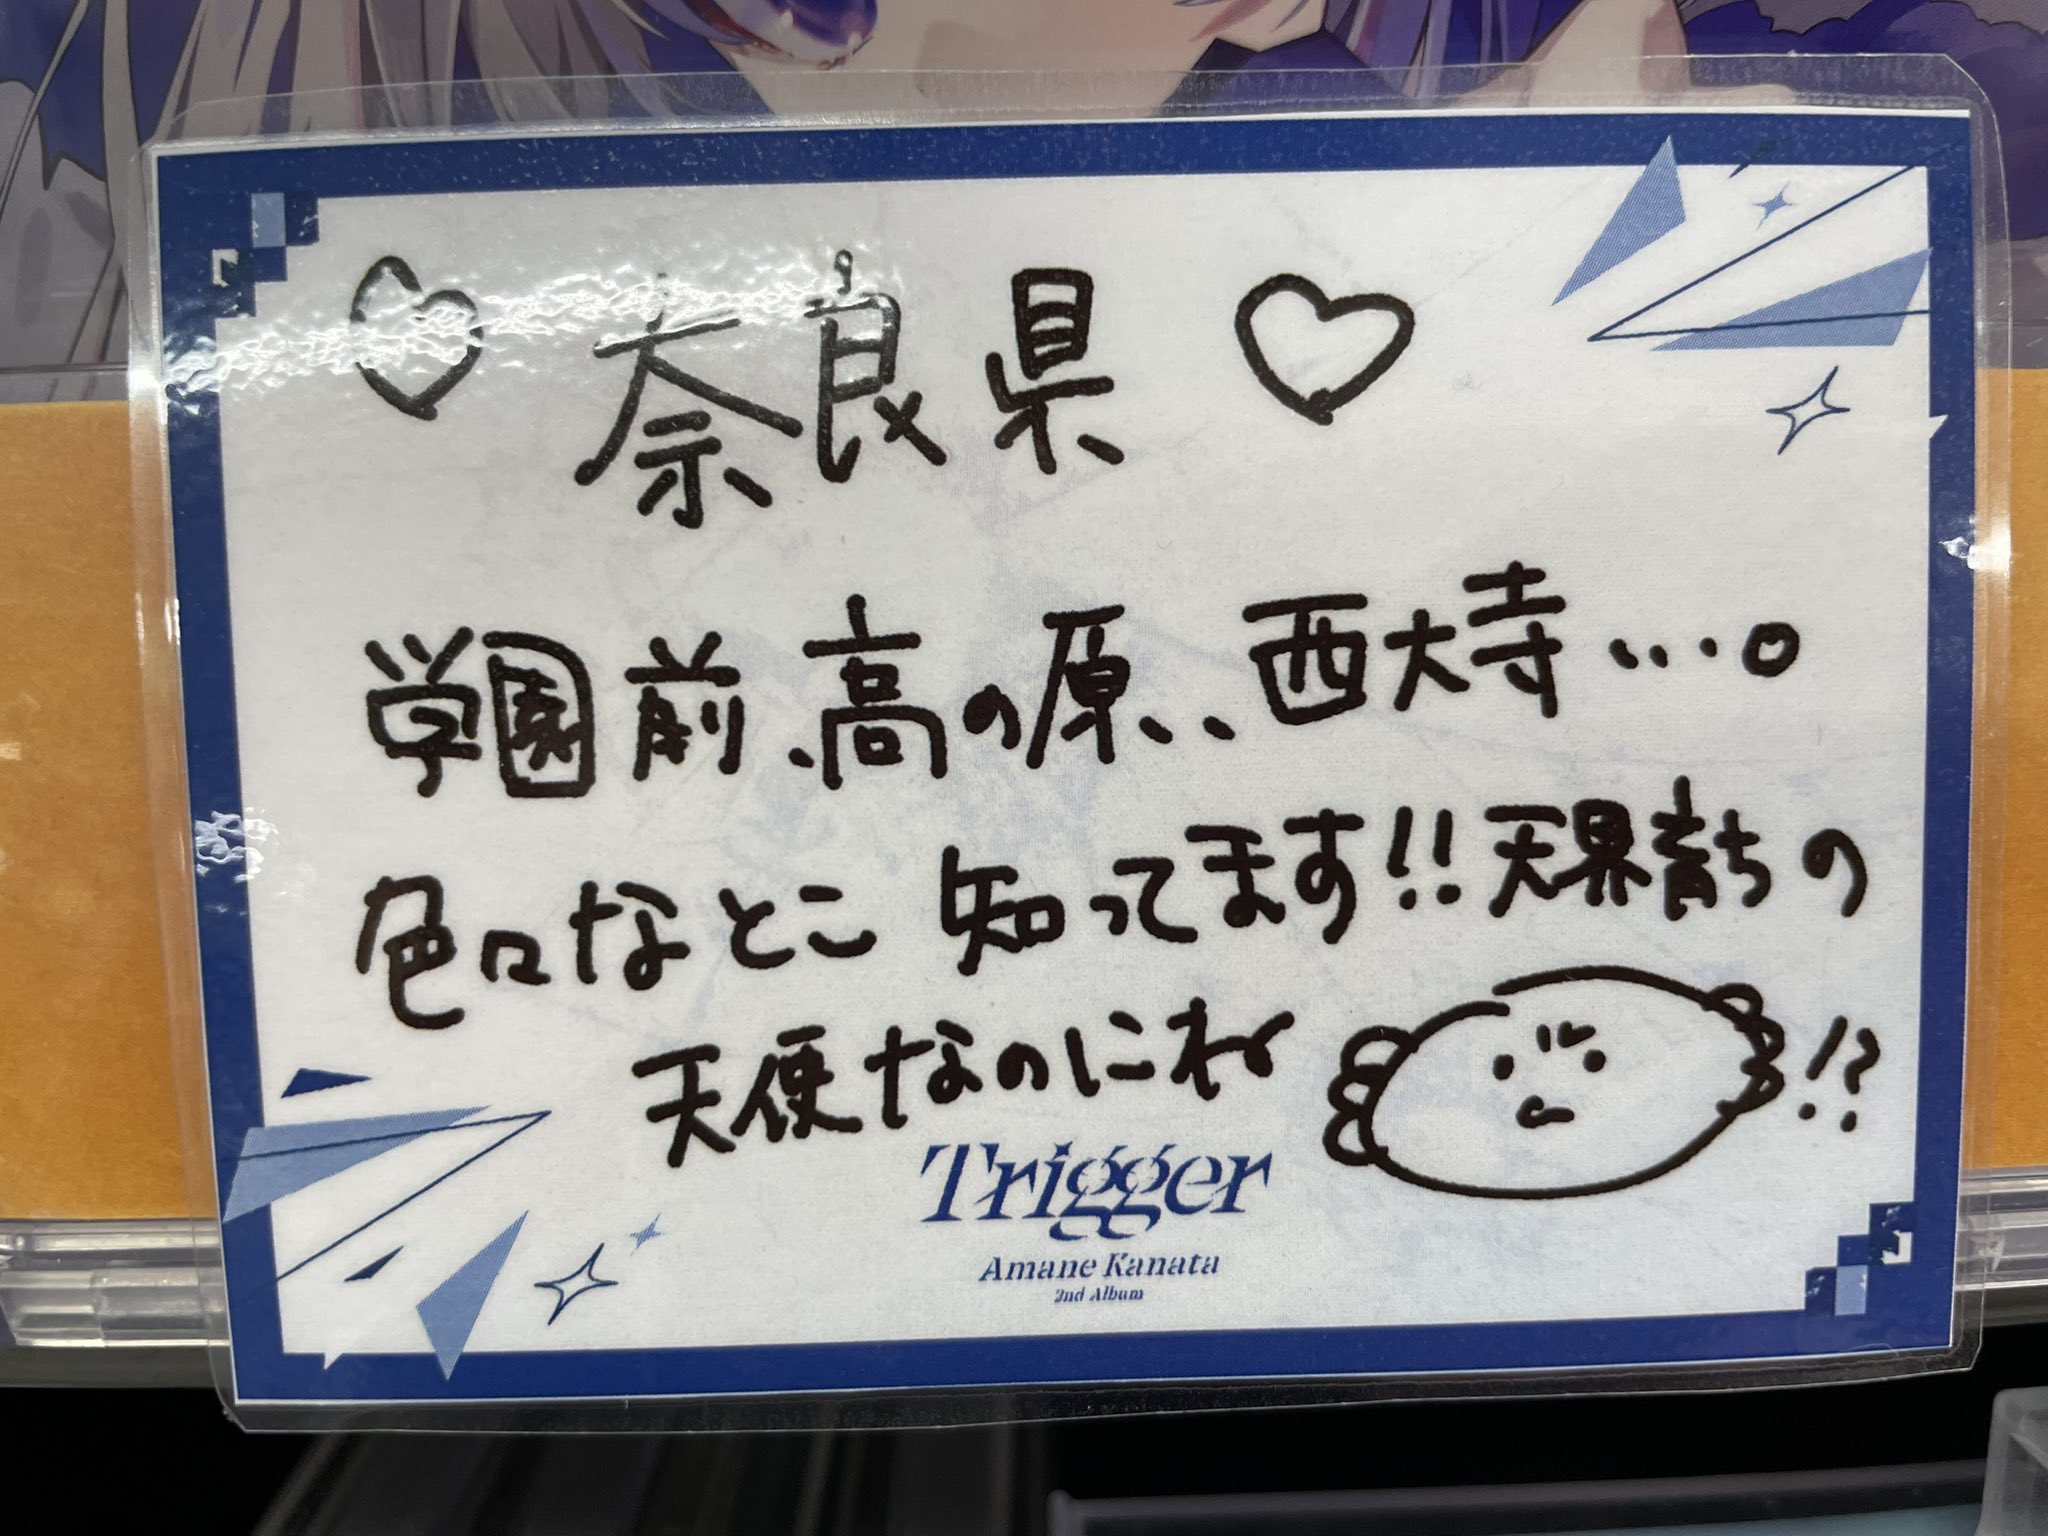 ♡ 奈良県 ♡
学園前、高の原、、西大寺…。
色々なとこ知ってます!!天界育ちの
天使なのにね !?
Trigger
Amane Kanata
2nd Album